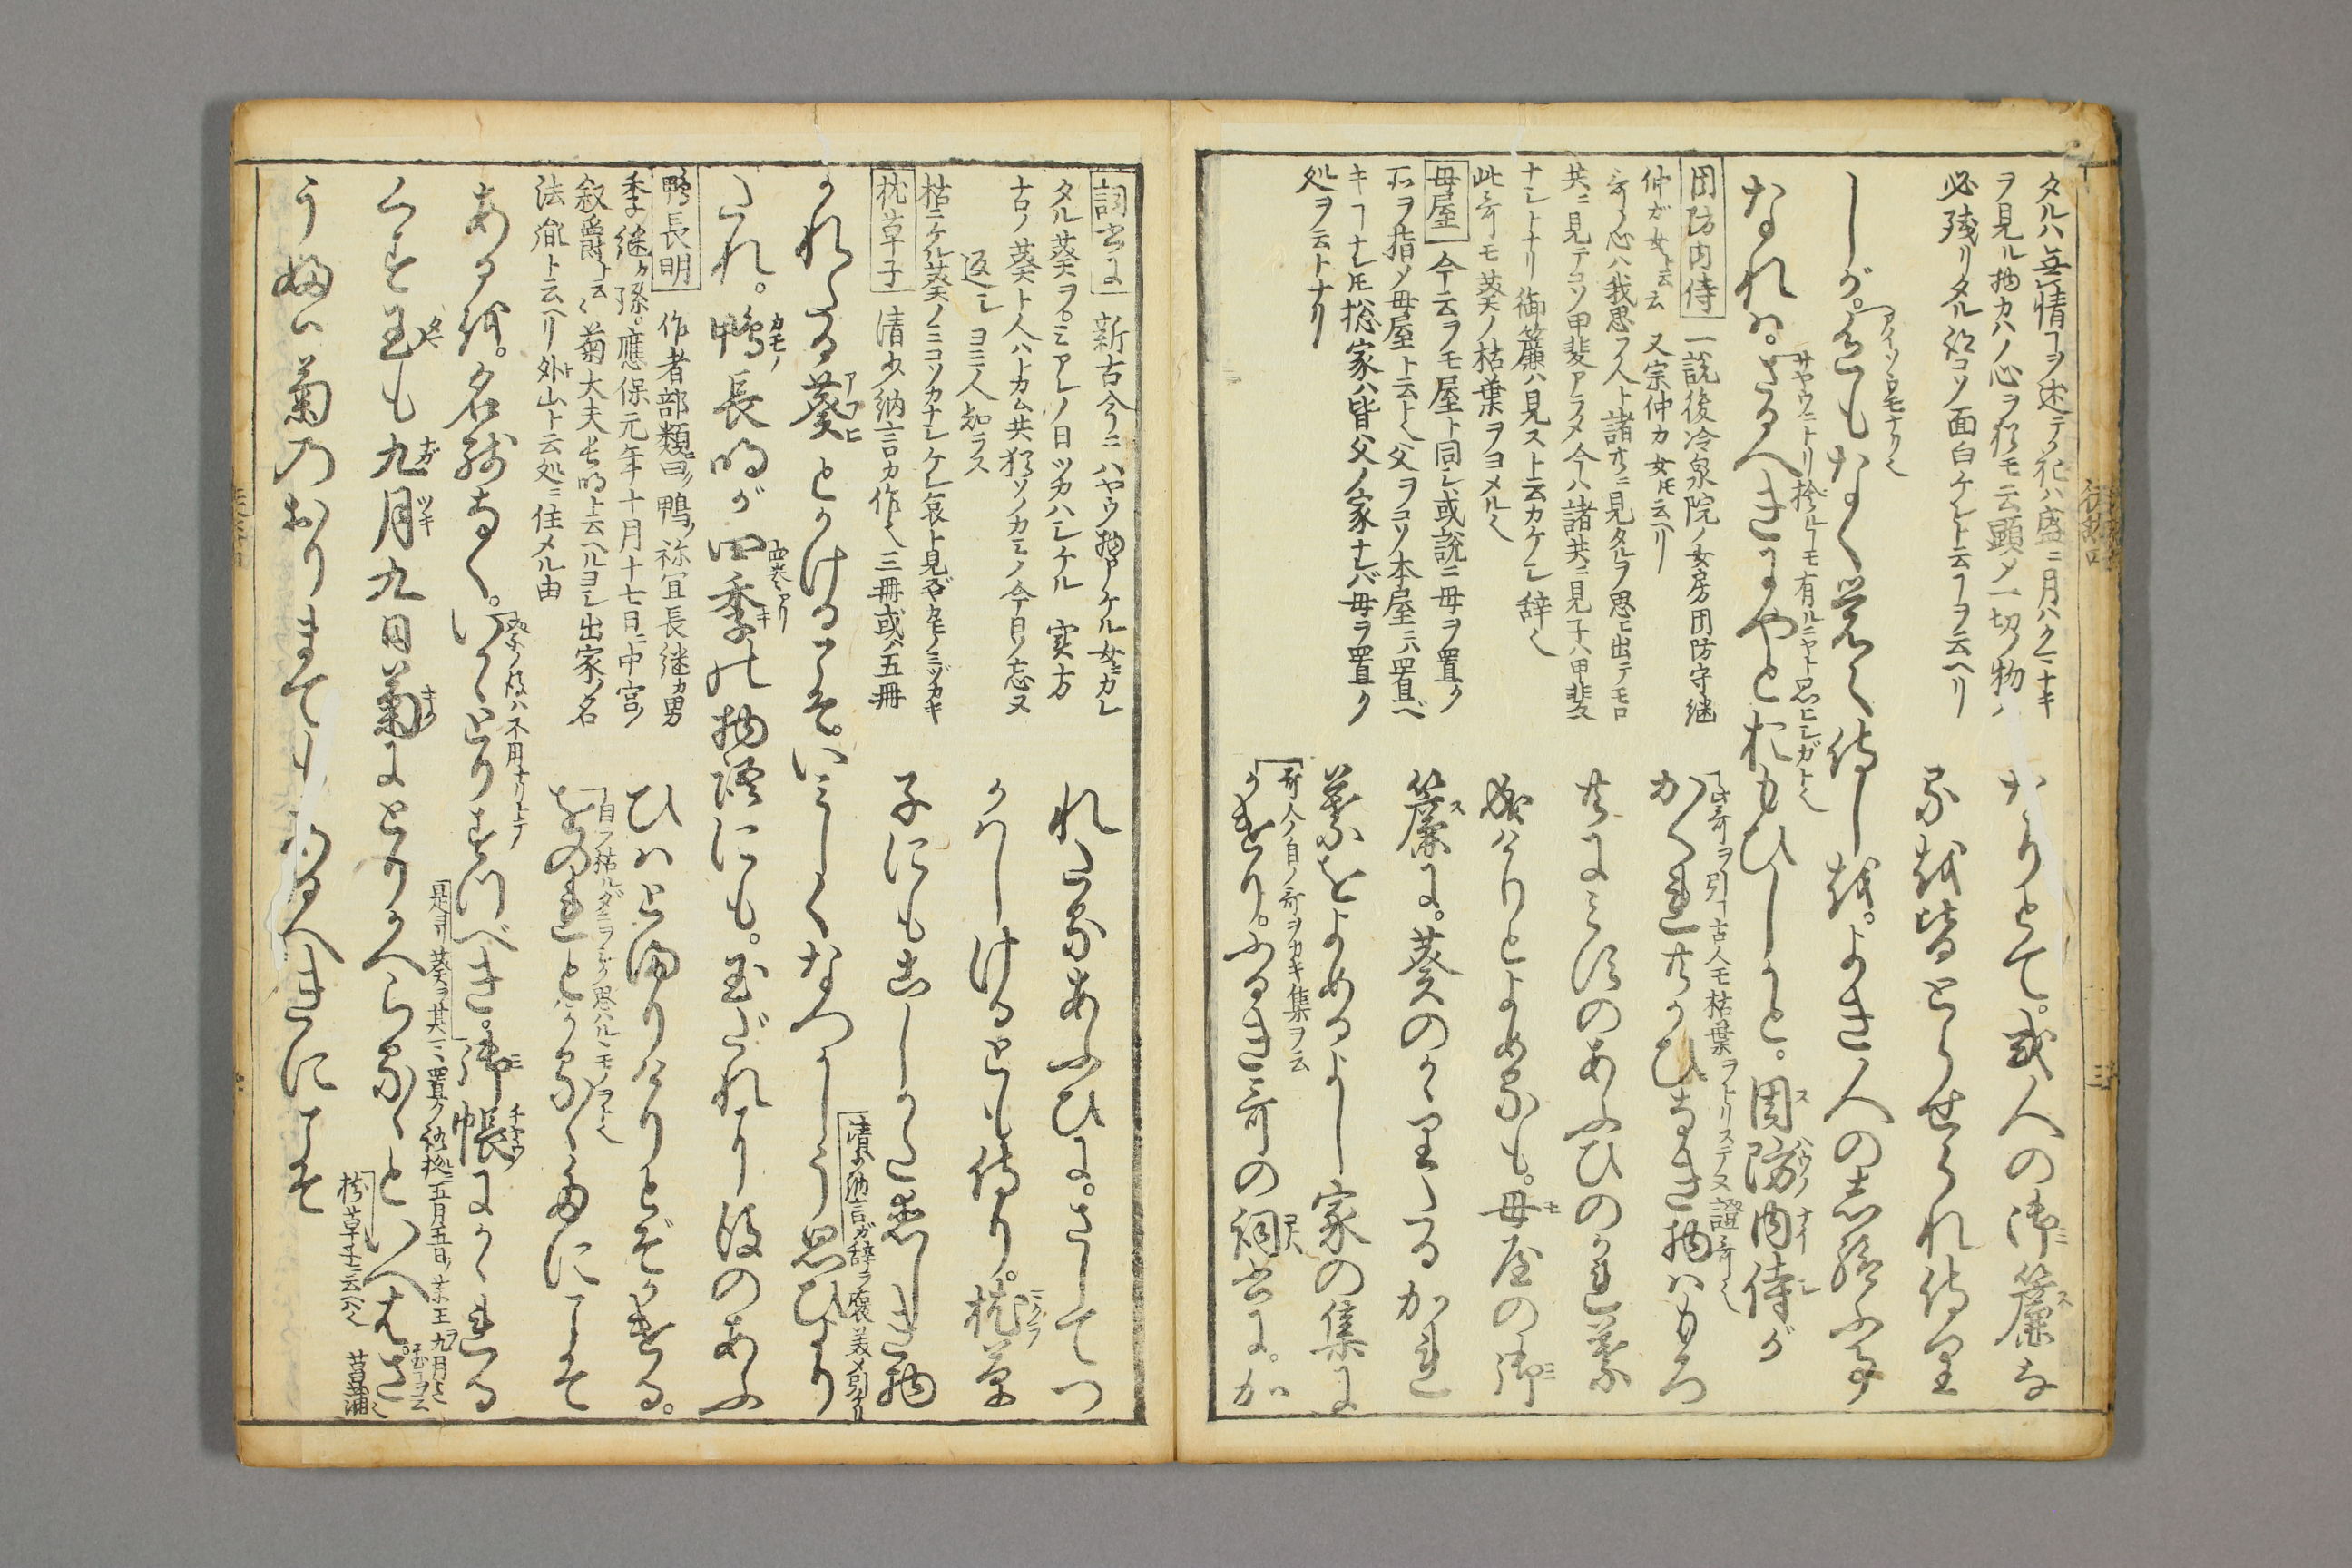 タルハ無情ヿヲ述テ花ハ盛ニ月ハクマナキ
ヲ見ル物カハノ心ヲ猶モ云顕メ一切ノ物ハ
必残リタル処コソ面白ケレト云ヿヲ云ヘリ
なりとて。或人の御簾な
る越皆とらせられ侍り
しが。色もなく覚え侍し越。よき人の志給ふ事
アイソウモナク也
なれハ。さるへきにやとおもひしかと。周防内侍が
サヤウニトリ捨ルヿモ有ルニヤト思ヒシガト也
周防内侍 一説後冷泉院ノ女房周防守継
仲ガ女ト云云 又宗仲カ女トモ云ヘリ
哥ノ心ハ我思フ人ト諸共ニ見タルヲ思ヒ出テモロ
共ニ見テコソ甲斐アラメ今ハ諸共ニ見子ハ甲斐
ナシトナリ御簾ハ見スト云カケシ辞也
此哥モ葵ノ枯葉ヲヨメル也
母屋 今云ヲモ屋ト同シ或説ニ母ヲ置ク
所ヲ指メ母屋ト云ト也父ヲコソ本屋ニハ置ベ
キヿナレ𪜈総家ハ皆父ノ家ナレバ母ヲ置ク
処ヲ云トナリ
此哥ヲ引ヿ古人モ枯葉ヲトリステヌ證哥也
かくれ共かひなき物ハもろ
共にみすのあふひのかれ葉
成けりとよめるも。母屋の御
簾に。葵のかゝりたるかれ
葉をよめるよし家の集に
哥人ノ自ノ哥ヲカキ集ヲ云
かけり。ふるき哥の詞書に。か
詞書に 新古今ニハヤウ物申ケル女ニカレ
タル葵ヲ。ミアレノ日ツカハシケル 実方
古ノ葵ト人ハトカム共猶ソノカミノ今日ソ忘ヌ
返シ ヨミ人知ラス
枯ニケル葵ノミコソカナシケレ哀ト見ズヤカモノミツカキ
枕草子 清少納言カ作也三冊或ハ五冊
れたるあふひに。さしてつ
かハしけるとも侍り。枕草
子にもこしかた恋しき物
かれたる葵とかけるこそ。いみしくなつかしう思ひより
清少納言ガ辞ヲ褒美メ引タリ
たれ。鴨長明が四季の物語にも。玉だれに後のあふ
四巻アリ
鴨長明 作者部類曰ク鴨ノ祢宜長継カ男
季継カ孫。應保元年十月十七日ニ中宮ノ
叙爵ト云云菊大夫長明ト云ヘルヨシ出家ノ名
法胤ト云ヘリ外山ト云処ニ住メル由
ひハとまりけりとぞかける。
自ラ枯ルダニヲシク思ハルヽモノヲト也
をのれとかるゝだにこそ
あるを。名残なく。いかゞとりすつべき。御帳にかゝれる
祭ノ後ハ不用ナリトテ
くす玉も九月九日菊にとりかへらるゝといへハ。さ
是ヨリ葵ヲ其マヽ置ク徴拠ニ五月五日ノ薬玉 九月マテ
うぶハ菊のおりまても有へきにこそ
枕草子ニ云ヘル也 菖蒲也